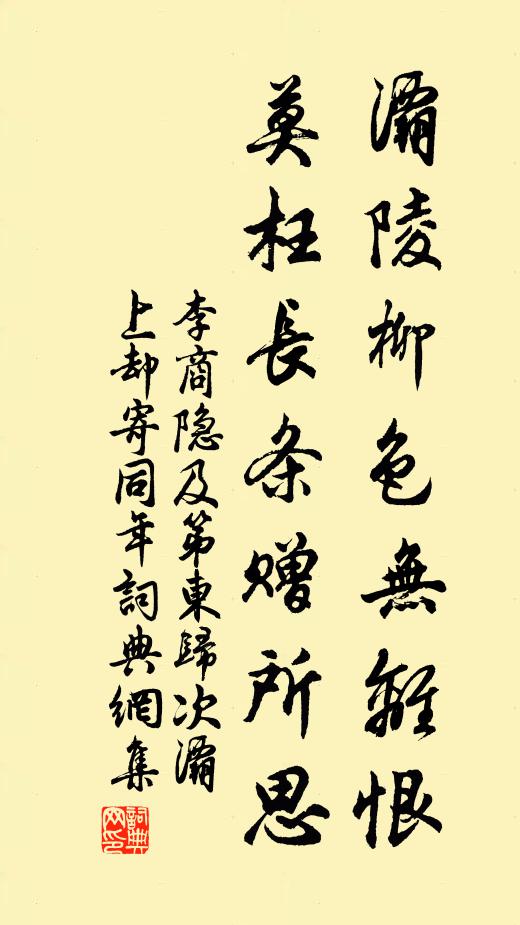 灞陵柳色無離恨
莫枉長条赠所思
李商隐及第東歸次灞
上却寄同年詞典網集
詞典
网印